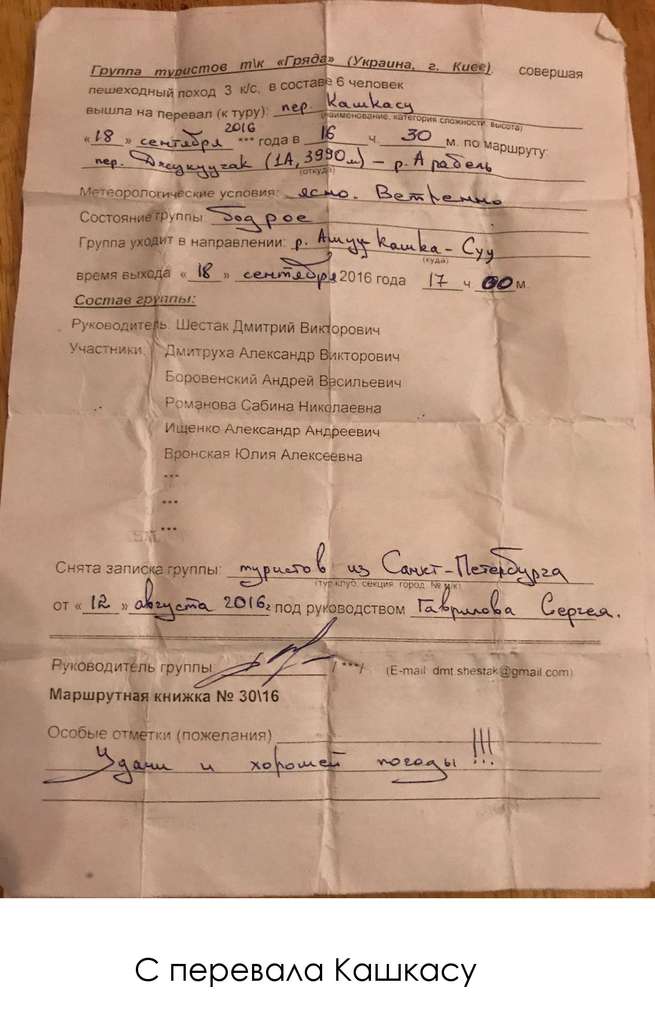 Группа туристов т\к «Гряда» (Украина, г. Киев), совершая
пешеходный поход 3 к/с, в составе 6 человек
вышла на перевал (к туру): пер. Кашкасу
(наименование, категория сложности, высота)
«18» сентября 2016 *** года в 16 ч. 30 м. по маршруту:
пер. Джукуучак (1А, 3990м) – р. Арабель
(откуда)
Метеорологические условия: ясно. Ветренно
Состояние группы: бодрое
Группа уходит в направлении: р. Ашуу Кашка-Суу
(куда)
время выхода «18» сентября 2016 года 17 ч 00 м.
Состав группы:
Руководитель: Шестак Дмитрий Викторович
Участники: Дмитруха Александр Викторович
Боровенский Андрей Васильевич
Романова Сабина Николаевна
Ищенко Александр Андреевич
Вронская Юлия Алексеевна
***
***
***
Снята записка группы: туристов из Санкт-Петербурга
(тур.клуб, секция, город, № м/к)
от «12» августа 2016г под руководством Гаврилова Сергея.
Руководитель группы /***/ (E-mail: dmt.shestak@gmail.com)
Маршрутная книжка № 30\16
Особые отметки (пожелания)
Удачи и хорошей погоды!!!
С перевала Кашкасу